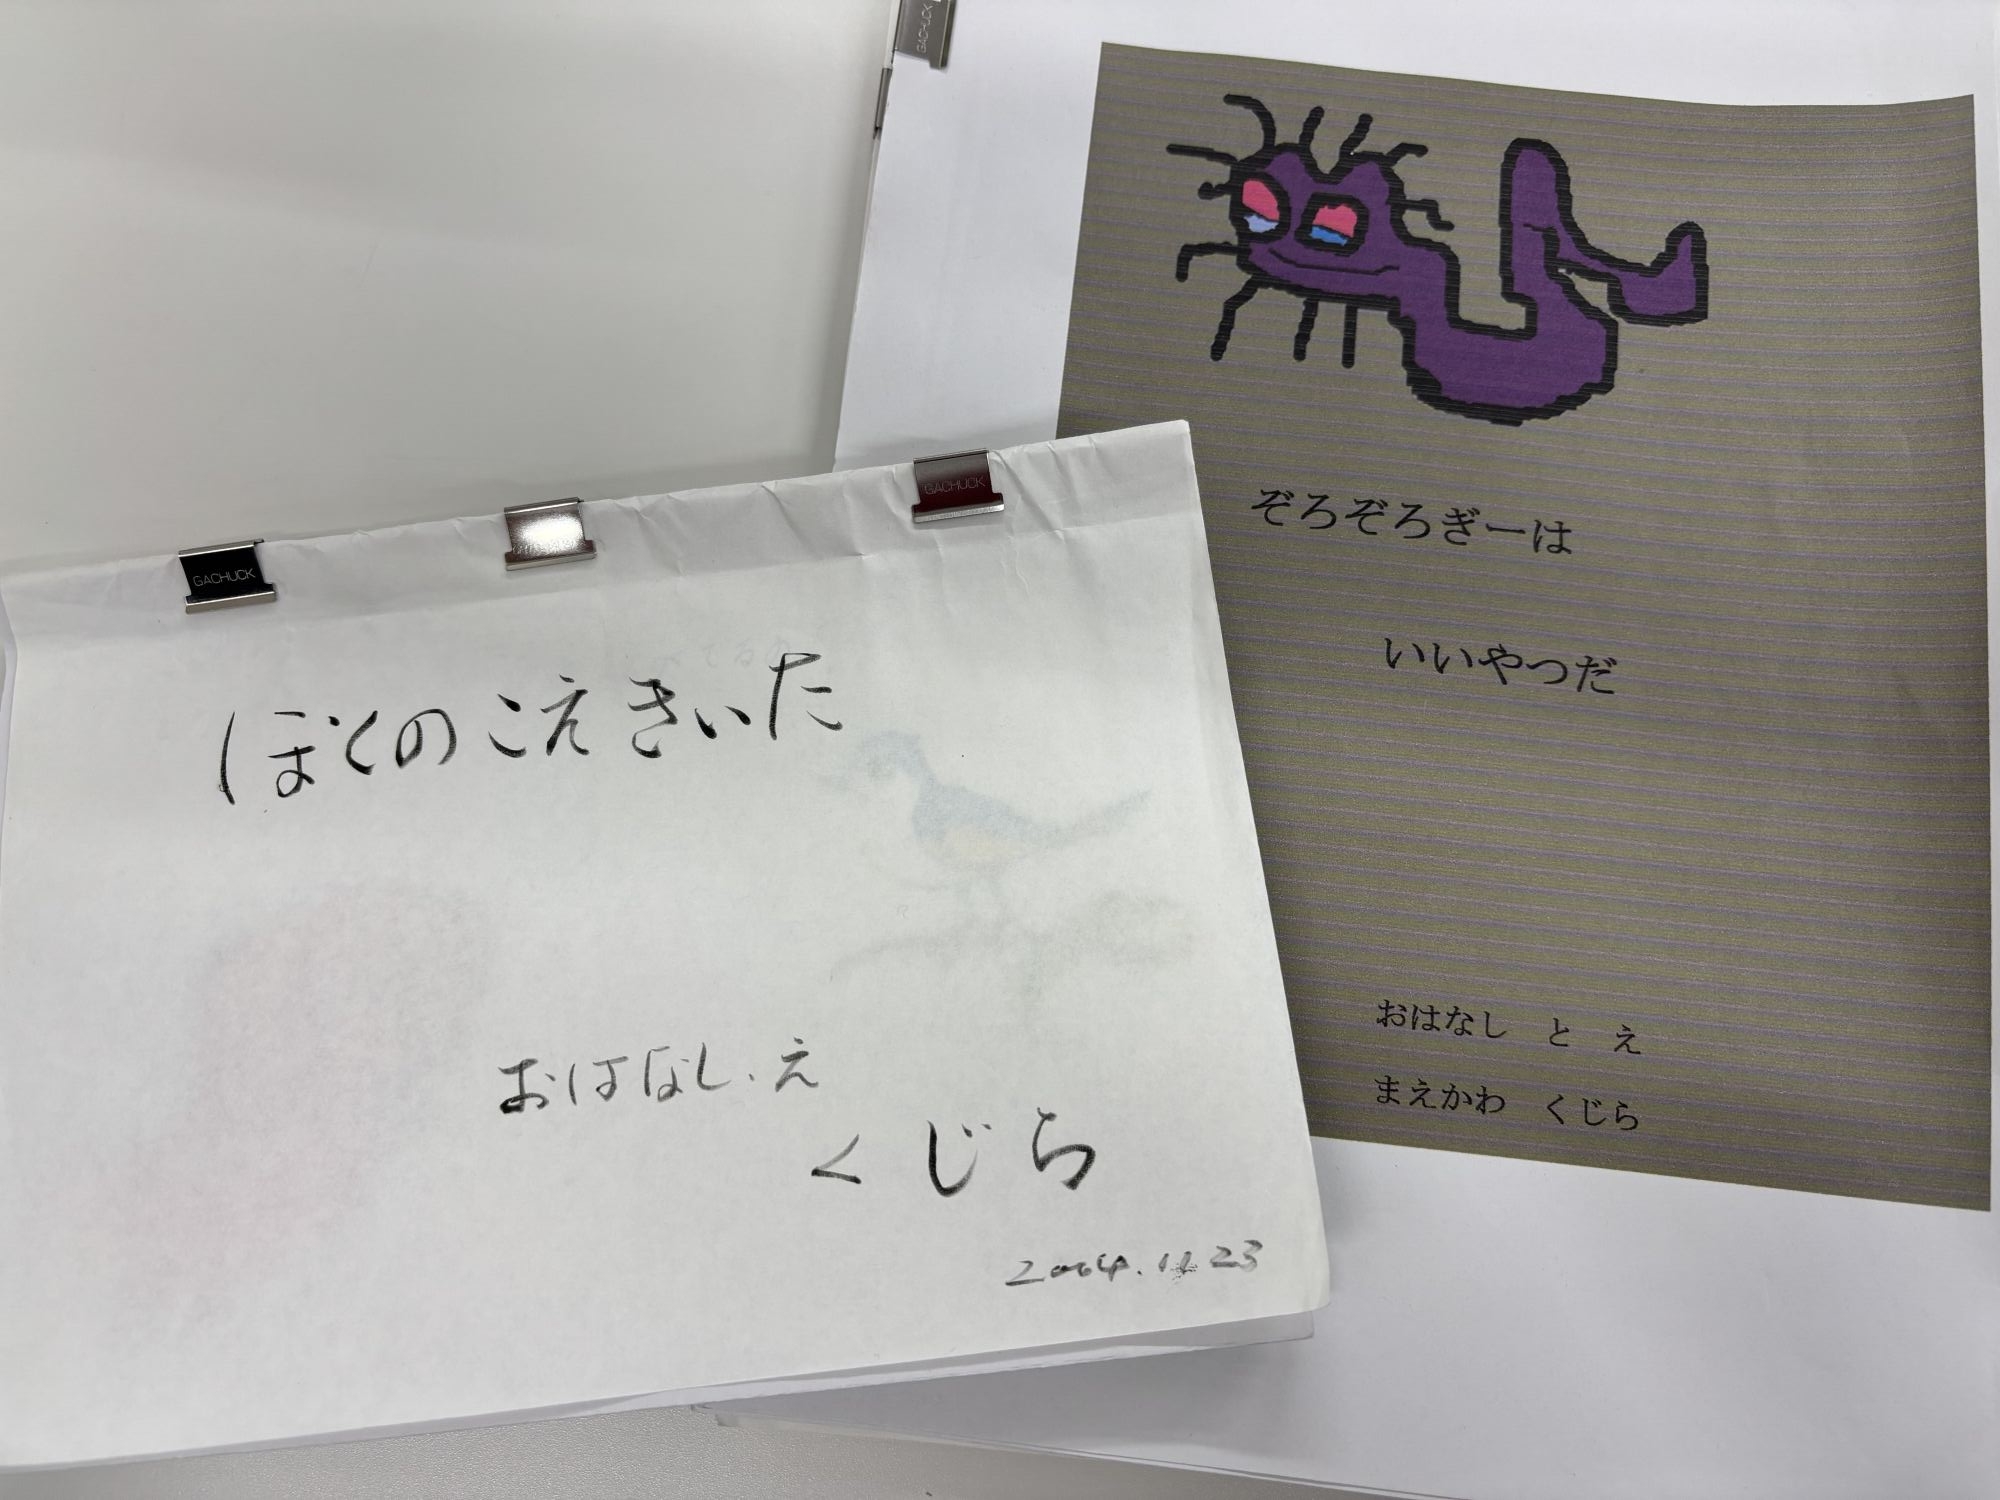 GACHUCK
ぞろぞろぎーは
いいやつだ
おはなし と え
まえかわ くじら
GACHUCK
GACHUCK
ぼくのこえきいた
おはなし.え
くじら
2004.11.23